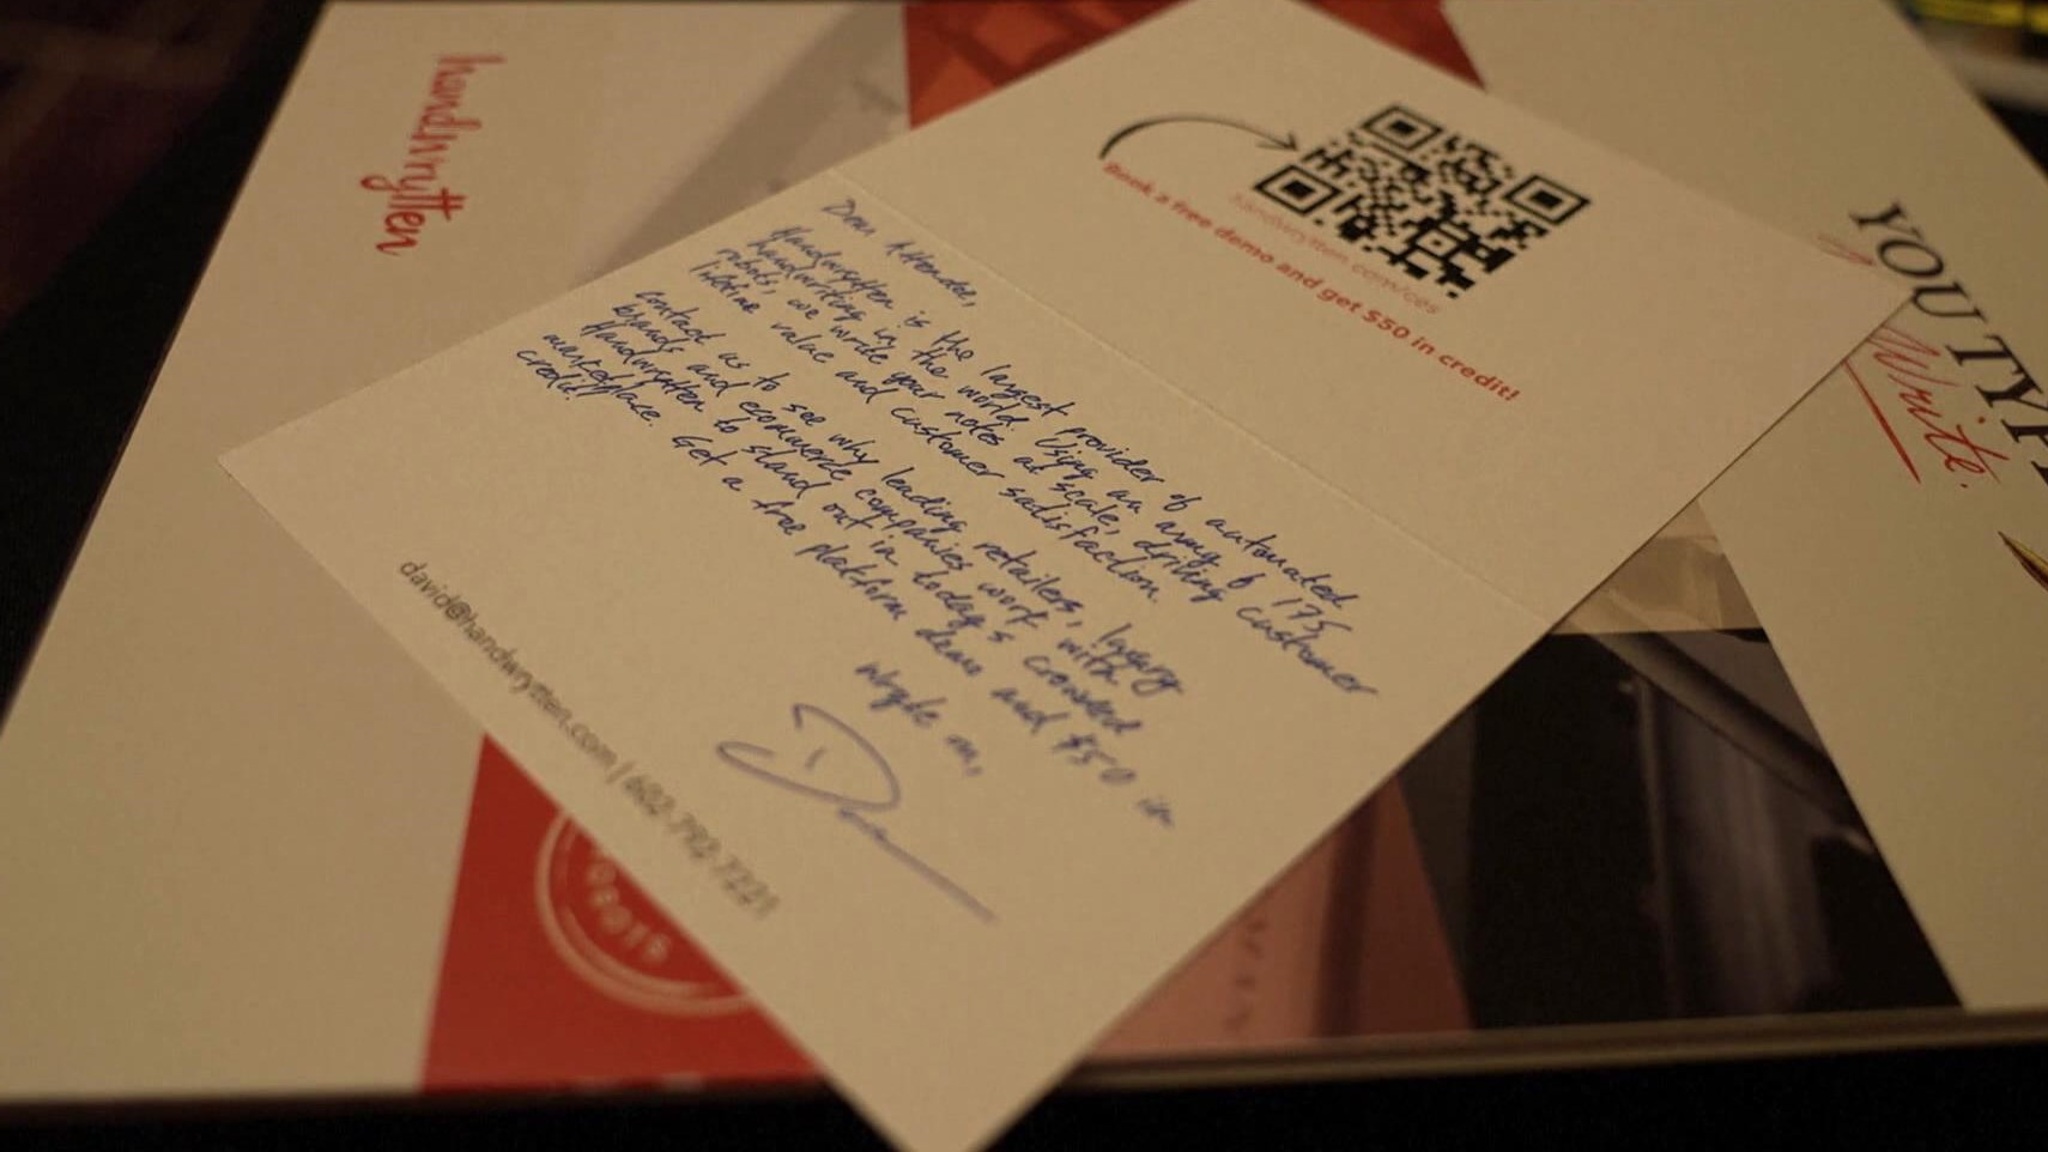 handwrytten
Book a free demo and get $50 in credit!
handwrytten.com/ces
Dear Attendee,
Handwrytten is the largest provider of automated
handwriting in the world. Using an army of 175
robots, we write your notes at scale, driving customer
lifetime value and customer satisfaction.
Contact us to see why leading retailers, luxury
brands and ecommerce companies work with
Handwrytten to stand out in today's crowded
marketplace. Get a free platform demo and $50 in
credit!
Wryte on,
david@handwrytten.com | 602-792-7221
YOU TYPE
Write.
ROBOTS